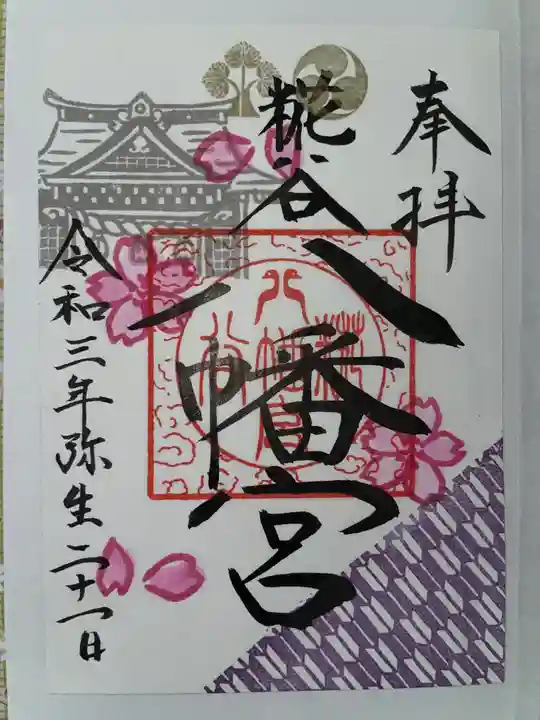 奉拝
糀谷八幡宮
令和三年弥生二十一日